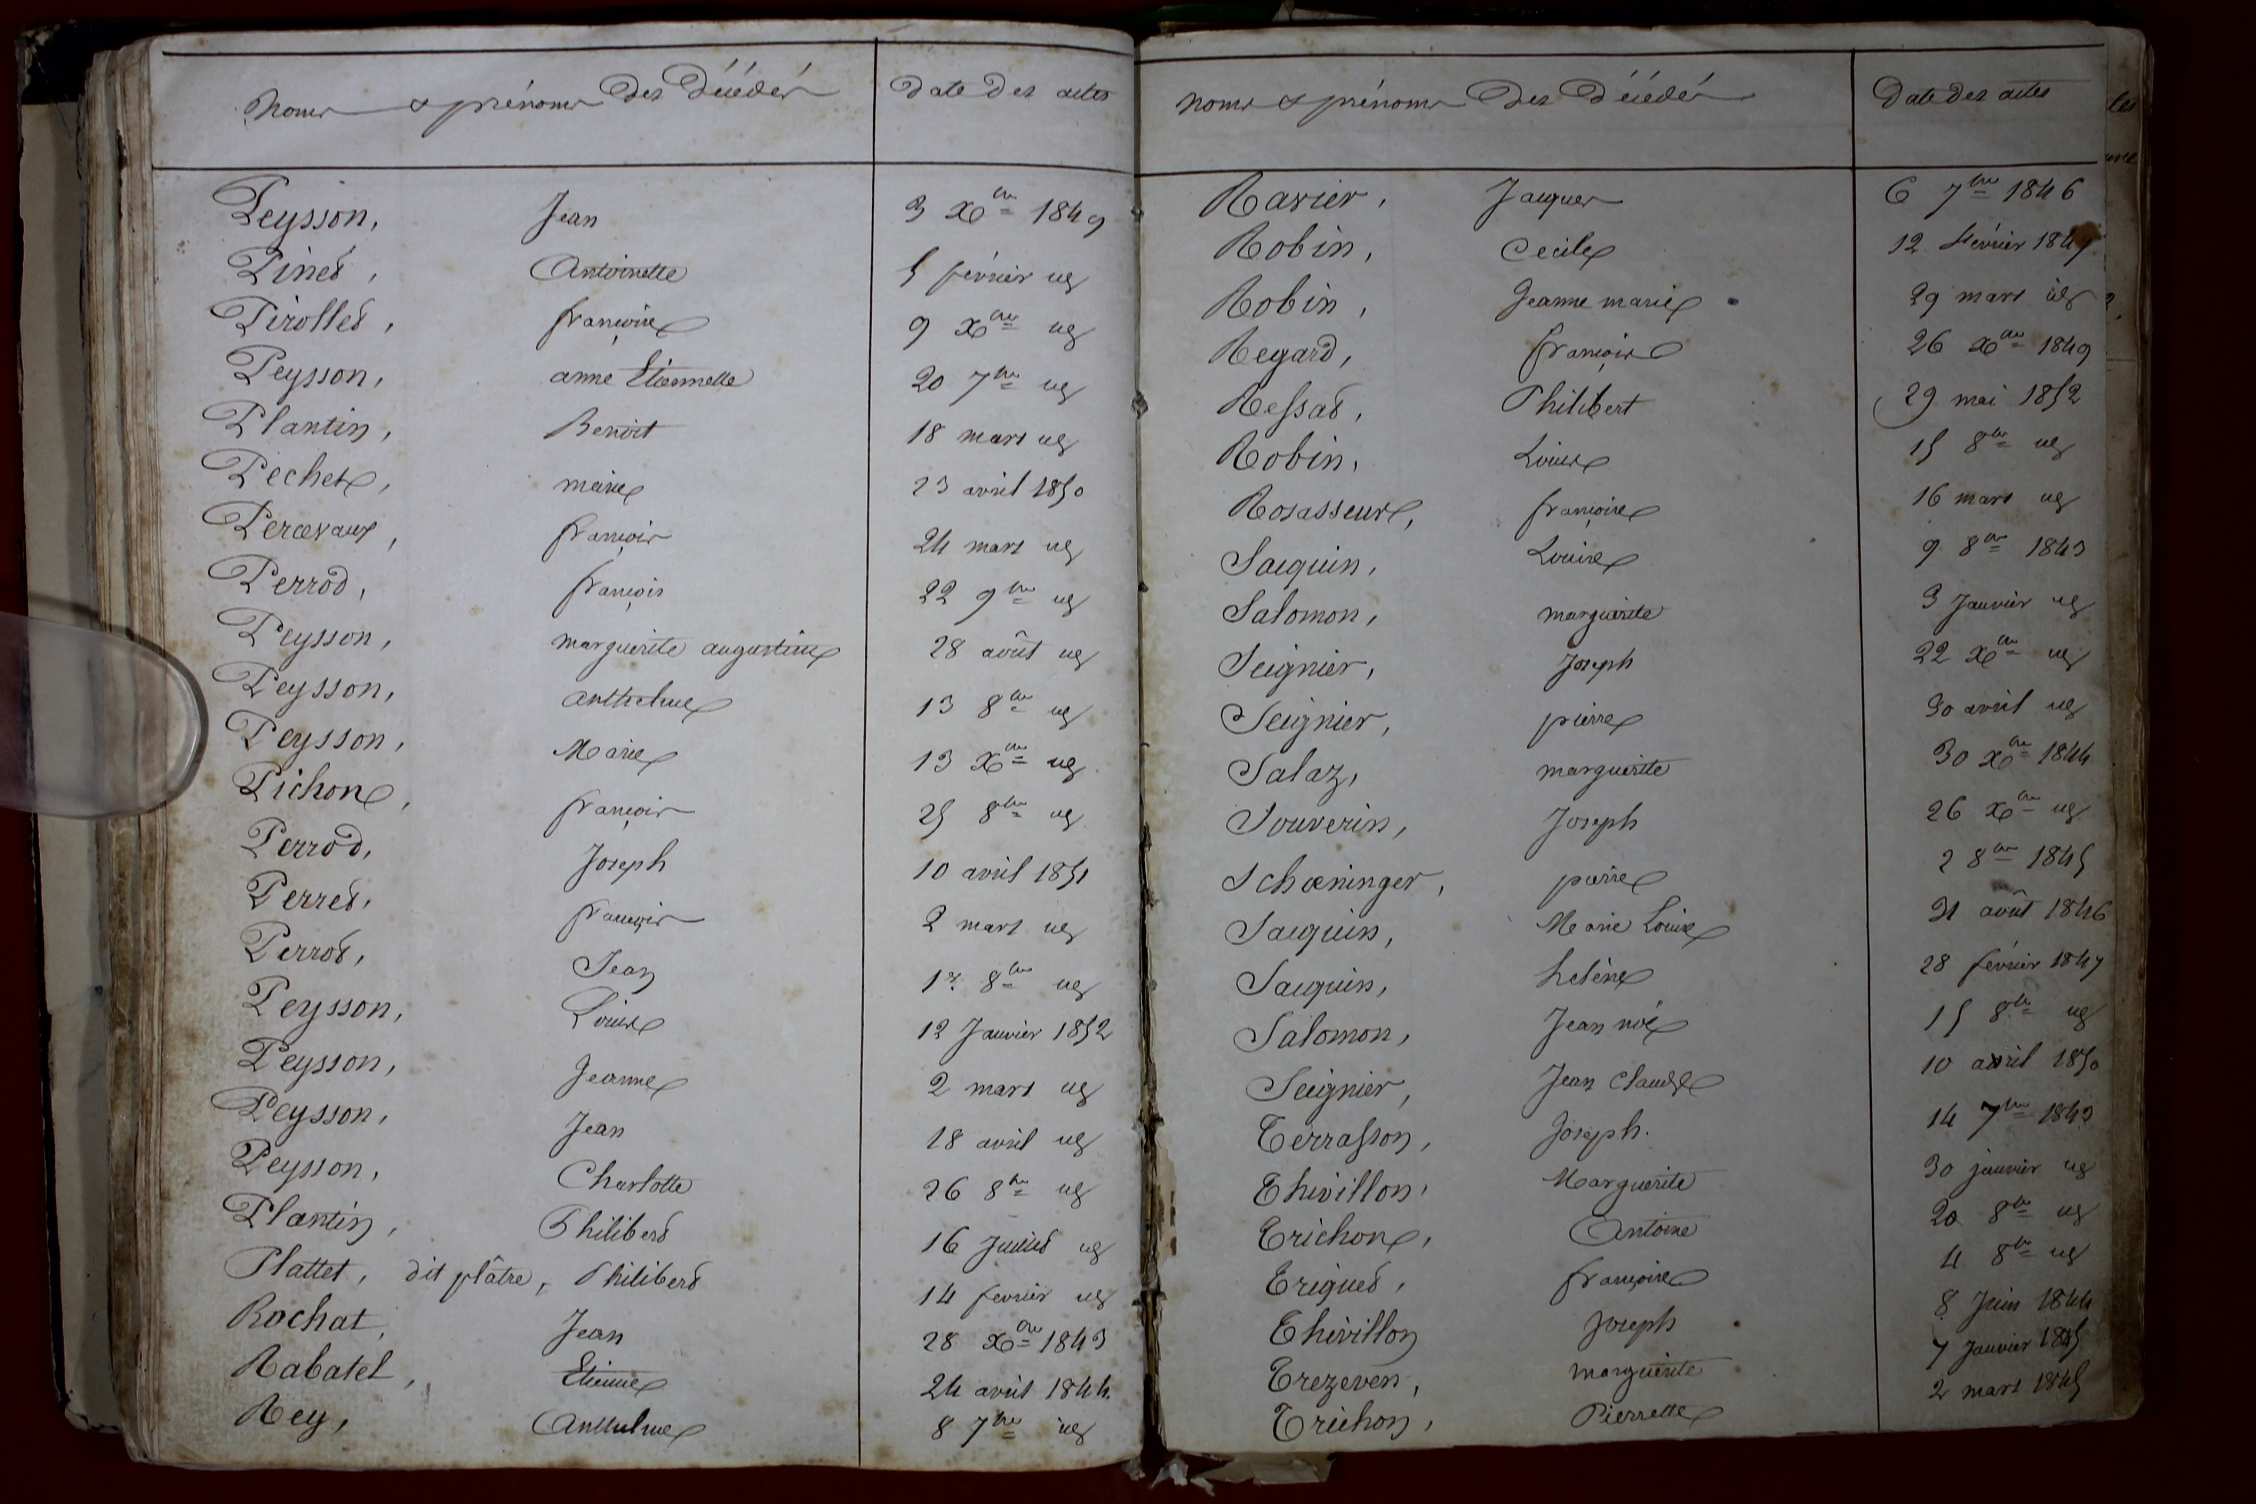 Noms & prénoms des Décédés Date des actes
Peysson, Jean 3 Xbre 1849
Pinet, Antoinette 5 février id
Pirollet, françoise 9 Xbre id
Peysson, anne Etiennette 20 7bre id
Plantin, Benoit 18 mars id
Pechet, marie 23 avril 1850
Percevaux, françois 24 mars id
Perrod, françois 22 9bre id
Peysson, marguerite augustine 28 août id
Peysson, anthelme 13 8bre id
Peysson, Marie 13 Xbre id
Pichon, françois 25 8bre id
Perrod, Joseph 10 avril 1851
Perret, françois 2 mars id
Perrot, Jean 1er 8bre id
Peysson, Louise 12 Janvier 1852
Peysson, Jeanne 2 mars id
Peysson, Jean 18 avril id
Peysson, Charlotte 26 8bre id
Plantin, Philibert 16 Juillet id
Plattet, dit plâtre, Philibert 14 fevrier id
Rochat, Jean 28 Xbre 1843
Rabatel, Etienne 24 août 1844.
Rey, Anthelme 8 7bre id
Noms & prénoms des Décédés Date des actes
Ravier, Jacques 6 7bre 1846
Robin, Cecile 12 février 1847
Robin, Jeanne marie 29 mars id
Regard, françoise 26 Xbre 1849
Ressat, Philibert 29 mai 1852
Robin, Louise 15 8bre id
Rosasseure, françoise 16 mars id
Sacquin, Louise 9 8bre 1843
Salomon, marguerite 3 Janvier id
Seignier, Joseph 22 Xbre id
Seignier, pierre 30 avril id
Salaz, marguerite 30 Xbre 1844
Souverin, Joseph 26 Xbre id
Schœninger, pierre 2 8bre 1845
Sacquin, Marie Louise 31 août 1846
Sacquin, helène 28 février 1847
Salomon, Jean noë 15 8bre id
Seignier, Jean Claude 10 avril 1850
Terrasson, Joseph. 14 7bre 1843
Thivillon, Marguerite 30 janvier id
Trichon, Antoine 20 8bre id
Triguet, françoise 4 8bre id
Thivillon Joseph 8 Juin 1844
Trezeven, marguerite 7 Janvier 1845
Trichon, Pierrette 2 mars 1845